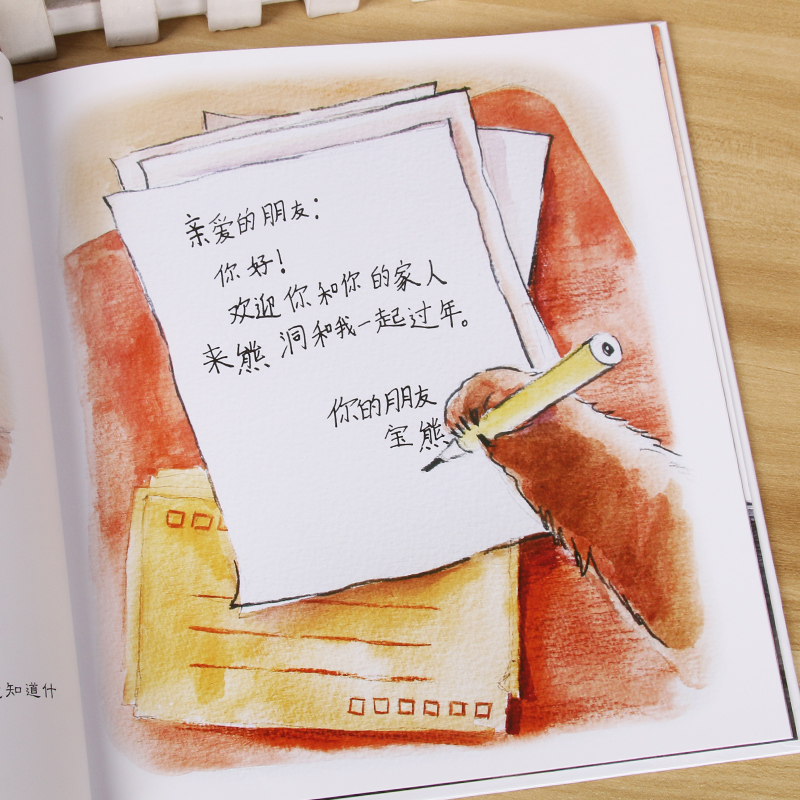 亲爱的朋友：
你好！
欢迎你和你的家人
来熊洞和我一起过年。
你的朋友
宝熊
知道什